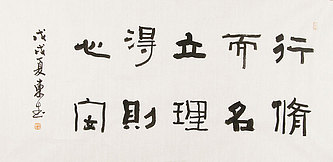 行脩
而名
立理
得則
心安
戊戌夏東